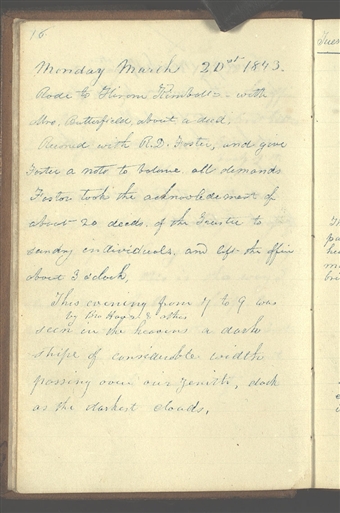 16
Monday March 20th 1843.
Rode to Hiram Kimball's - with
Mrs. Butterfield, about a deed.
Reconed with R.D. Foster, and give
Foster a note to balance all demands
Foster took the acknowledgement of
about 20 deeds. of the Trustee to
sundry individuals, and left the office
about 3 oclock,
This evening from 7 to 9 was
by & others
seen in the heavens a dark
stripe of considerable width
passing over our zenith, dark
as the darkest clouds,
Tues